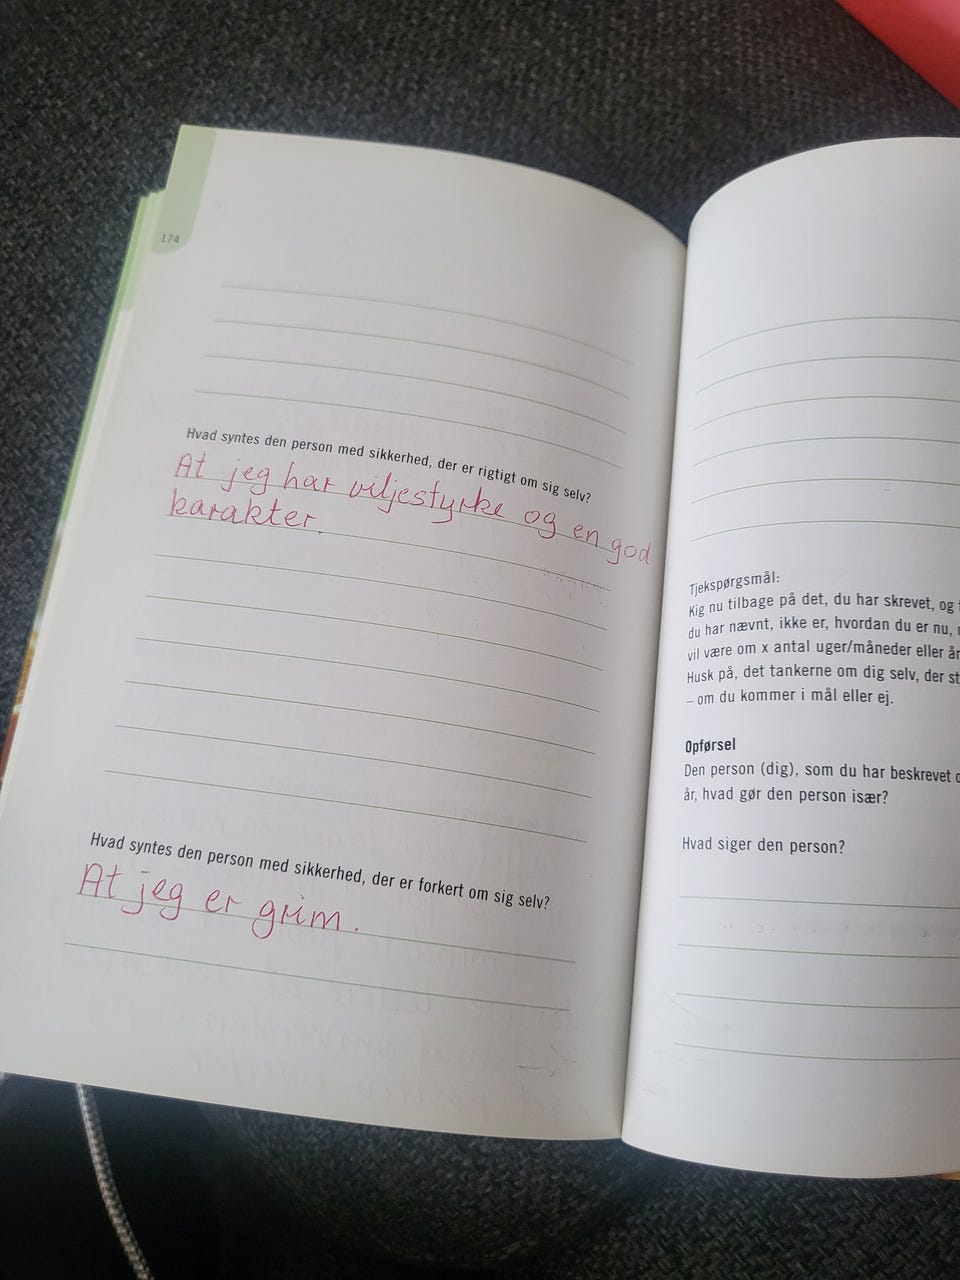 174
Hvad syntes den person med sikkerhed, der er rigtigt om sig selv?
At jeg har viljestyrke og en god
karakter.
Hvad syntes den person med sikkerhed, der er forkert om sig selv?
At jeg er grim.
Tjekspørgsmål:
Kig nu tilbage på det, du har skrevet, og
du har nævnt, ikke er, hvordan du er nu,
vil være om x antal uger/måneder eller år
Husk på, det tankerne om dig selv, der
– om du kommer i mål eller ej.
Opførsel
Den person (dig), som du har beskrevet
år, hvad gør den person især?
Hvad siger den person?